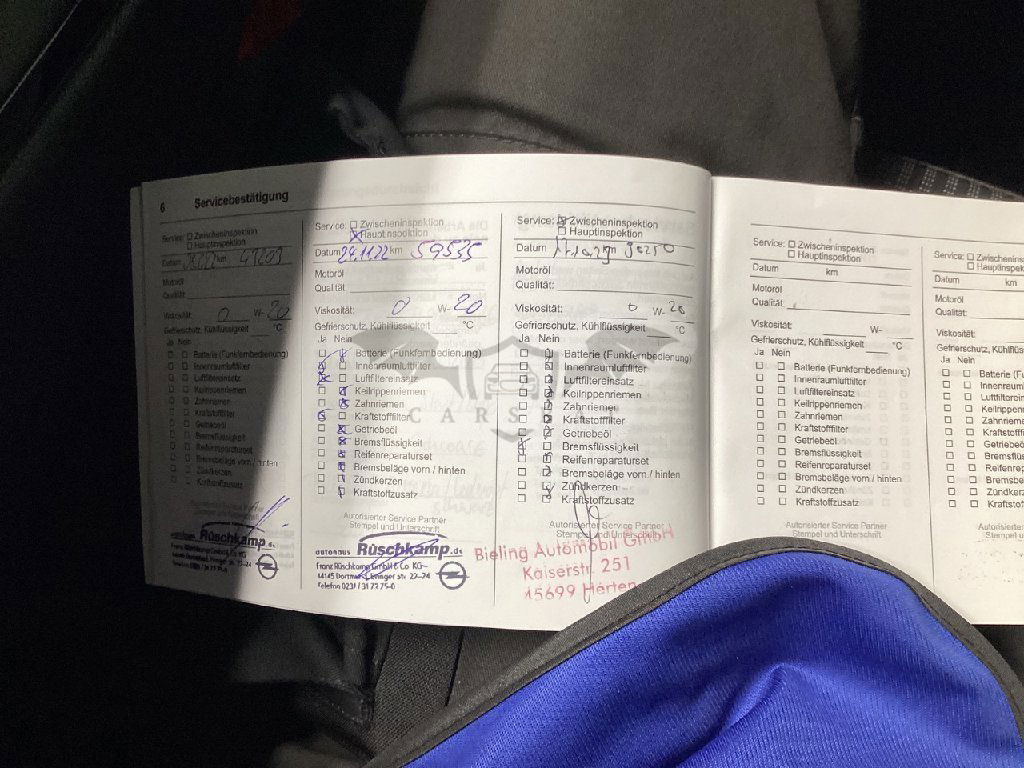 6 Servicebestätigung
Service: ☐ Zwischeninspektion
☐ Hauptinspektion
Datum km
Motoröl
Qualität:
Viskosität: 0 W- 20
Gefrierschutz, Kühlflüssigkeit °C
Ja Nein
Batterie (Funkfernbedienung)
Innenraumluftfilter
Luftfiltereinsatz
Keilrippenriemen
Zahnriemen
Kraftstofffilter
Getriebeöl
Bremsflüssigkeit
Reifenreparaturset
Bremsbeläge vorn / hinten
Zündkerzen
Kraftstoffzusatz
Rüschkamp.de
Service: ☐ Zwischeninspektion
☒ Hauptinspektion
Datum 29.11.22 km 59535
Motoröl
Qualität
Viskosität: 0 W- 20
Gefrierschutz, Kühlflüssigkeit °C
Ja Nein
Batterie (Funkfernbedienung)
Innenraumluftfilter
Luftfiltereinsatz
Keilrippenriemen
Zahnriemen
Kraftstofffilter
Getriebeöl
Bremsflüssigkeit
Reifenreparaturset
Bremsbeläge vorn / hinten
Zündkerzen
Kraftstoffzusatz
Autorisierter Service Partner
Stempel und Unterschrift
autohaus Rüschkamp.de
Franz Rüschkamp GmbH & Co. KG
44145 Dortmund, Evinger Str. 22-24
Service: ☒ Zwischeninspektion
☐ Hauptinspektion
Datum km
Motoröl
Qualität:
Viskosität: 0 W- 20
Gefrierschutz, Kühlflüssigkeit °C
Ja Nein
Batterie (Funkfernbedienung)
Innenraumluftfilter
Luftfiltereinsatz
Keilrippenriemen
Zahnriemen
Kraftstofffilter
Getriebeöl
Bremsflüssigkeit
Reifenreparaturset
Bremsbeläge vorn / hinten
Zündkerzen
Kraftstoffzusatz
Autorisierter Service Partner
Stempel und Unterschrift
Bieling Automobil GmbH
Kaiserstr. 251
45699 Herten
Service: ☐ Zwischeninspektion
☐ Hauptinspektion
Datum km
Motoröl
Qualität:
Viskosität: W-
Gefrierschutz, Kühlflüssigkeit °C
Ja Nein
Batterie (Funkfernbedienung)
Innenraumluftfilter
Luftfiltereinsatz
Keilrippenriemen
Zahnriemen
Kraftstofffilter
Getriebeöl
Bremsflüssigkeit
Reifenreparaturset
Bremsbeläge vorn / hinten
Zündkerzen
Kraftstoffzusatz
Autorisierter Service Partner
Stempel und Unterschrift
Service: ☐ Zwischenins
☐ Hauptinspek
Datum km
Motoröl
Qualität:
Viskosität:
Gefrierschutz, Kühlflüss
Ja Nein
Batterie (Fu
Innenraum
Luftfilterein
Keilrippen
Zahnrieme
Kraftstofffi
Getriebeö
Bremsflüs
Reifenrep
Bremsbel
Zündker
Kraftstof